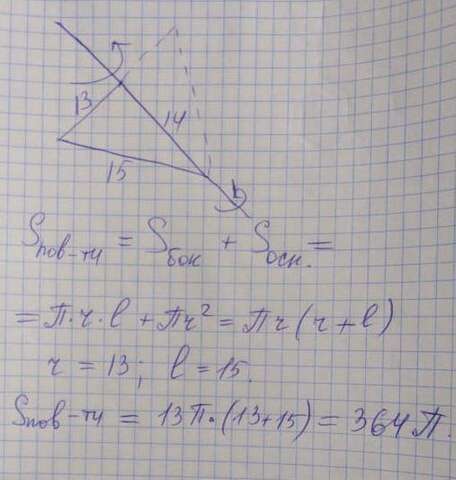 13
14
15
Sпов-ти = Sбок + Sосн. =
= П·r·l + Пr² = Пr(r+l)
r = 13; l = 15.
Sпов-ти = 13П·(13+15) = 364П.